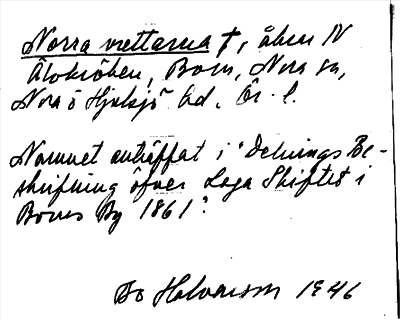 Norra vrettarna †, åker IV
Älvkröken, Born, Nora sn,
Nora o Hjulsjö bd, Ör. l.
Namnet anträffat i "Delnings Be-
skrifning öfver Laga Skiftet i
Borns By 1861".
Bo Halvarson 1946